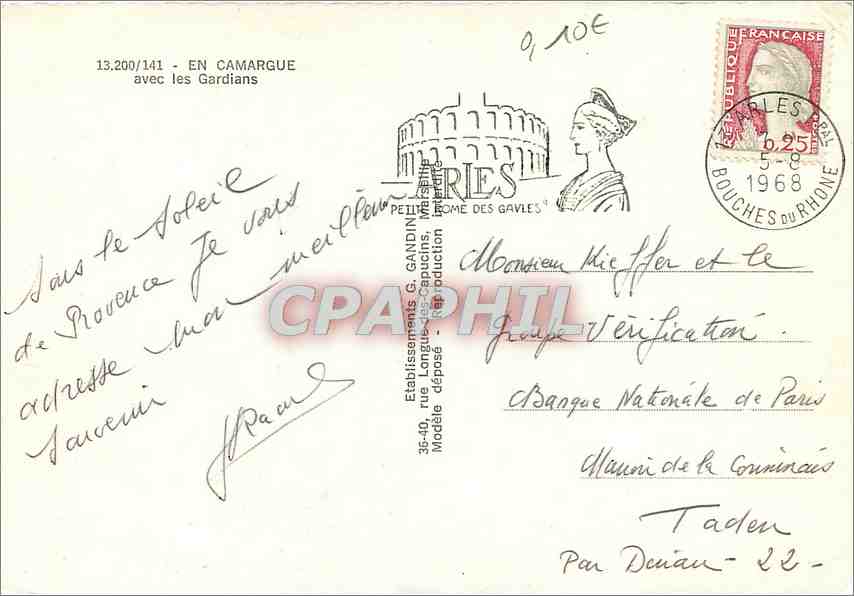 0,10€
13.200/141 - EN CAMARGUE
avec les Gardians
RÉPUBLIQUE FRANÇAISE
0,25
ARLES
PETITE ROME DES GAULES
ARLES PPAL
5-8
1968
BOUCHES DU RHONE
Sous le Soleil
de Provence Je vous
adresse mon meilleur
Souvenir
Etablissements G. GANDINI
36-40, rue Longue-des-Capucins, Marseille
Modèle déposé - Reproduction interdite
CPAPHIL
Monsieur Kieffer et le
groupe Vérification.
Banque Nationale de Paris
Manoir de la Conninais
Taden
Par Dinan - 22 -